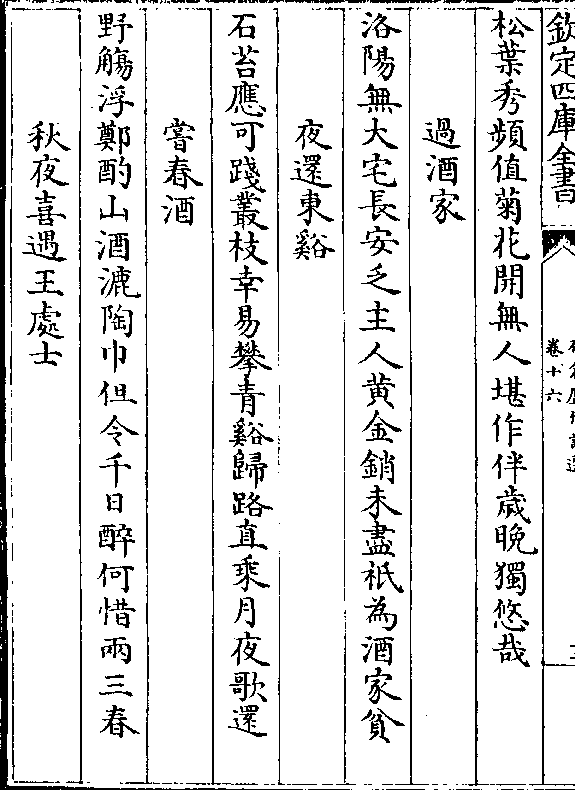 欽定四庫全書
卷十六
松葉秀頻值菊花開無人堪作伴歲晚獨悠哉
過酒家
洛陽無大宅長安乏主人黄金銷未盡祇為酒家貧
夜還東谿
石苔應可踐叢枝幸易攀青谿歸路直乘月夜歌還
嘗春酒
野觴浮鄭酌山酒漉陶巾但令千日醉何惜兩三春
秋夜喜遇王處士